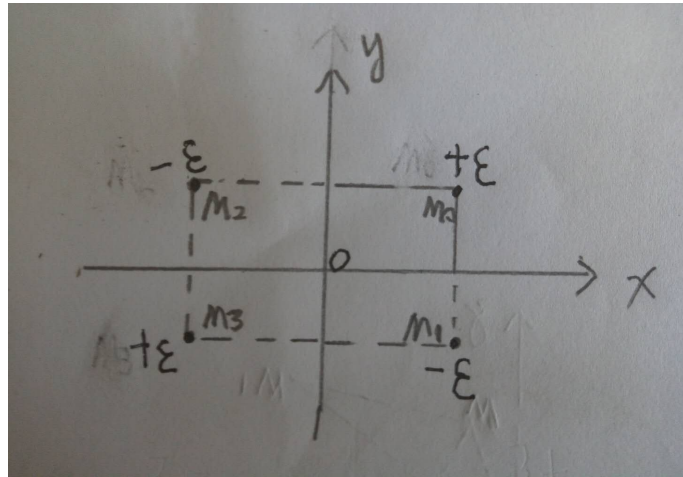 y
-ε +ε
M₂ M₀
O
x
M₃ M₁
+ε -ε